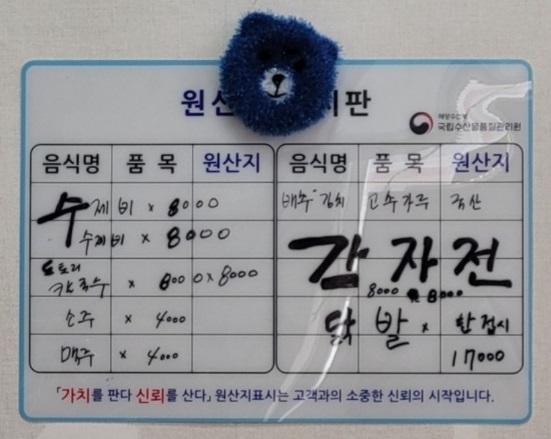 원산 시판
해양수산부
국립수산물품질관리원
음식명 품 목 원산지 음식명 품 목 원산지
수제비 x 8000
수제비 x 8000
도토리
칼국수 x 8000 x 8000
소주 x 4000
맥주 x 4000
배추김치 고추가루 국산
감자전
8000 8000
닭발 x 한접시
17000
「가치를 판다 신뢰를 산다」 원산지표시는 고객과의 소중한 신뢰의 시작입니다.